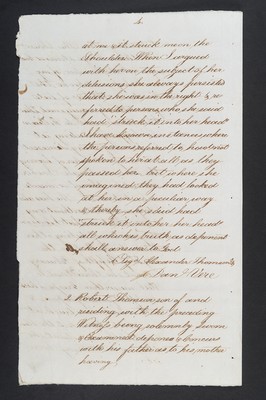 4.
at me & it struck me on the
shoulder. When I argued
with her on the subject of her
delusions she always persisted
that she was in the right & re
ferred to persons, who, she said
had "struck it into her head"
I have known instances where
the persons referred to, had not
spoken to her at all as they
passed her, but where she
imagined they had looked
at her in a peculiar way
& thereby she said had
struck it into her head
all which is truth as deponent
shall answer to God.
(Sigd) Alexander Thomson
2. Robert Thomson son of and
residing with the preceding
Witness being solemnly sworn
& examined depones & Concurs
with his father as to his mother
having